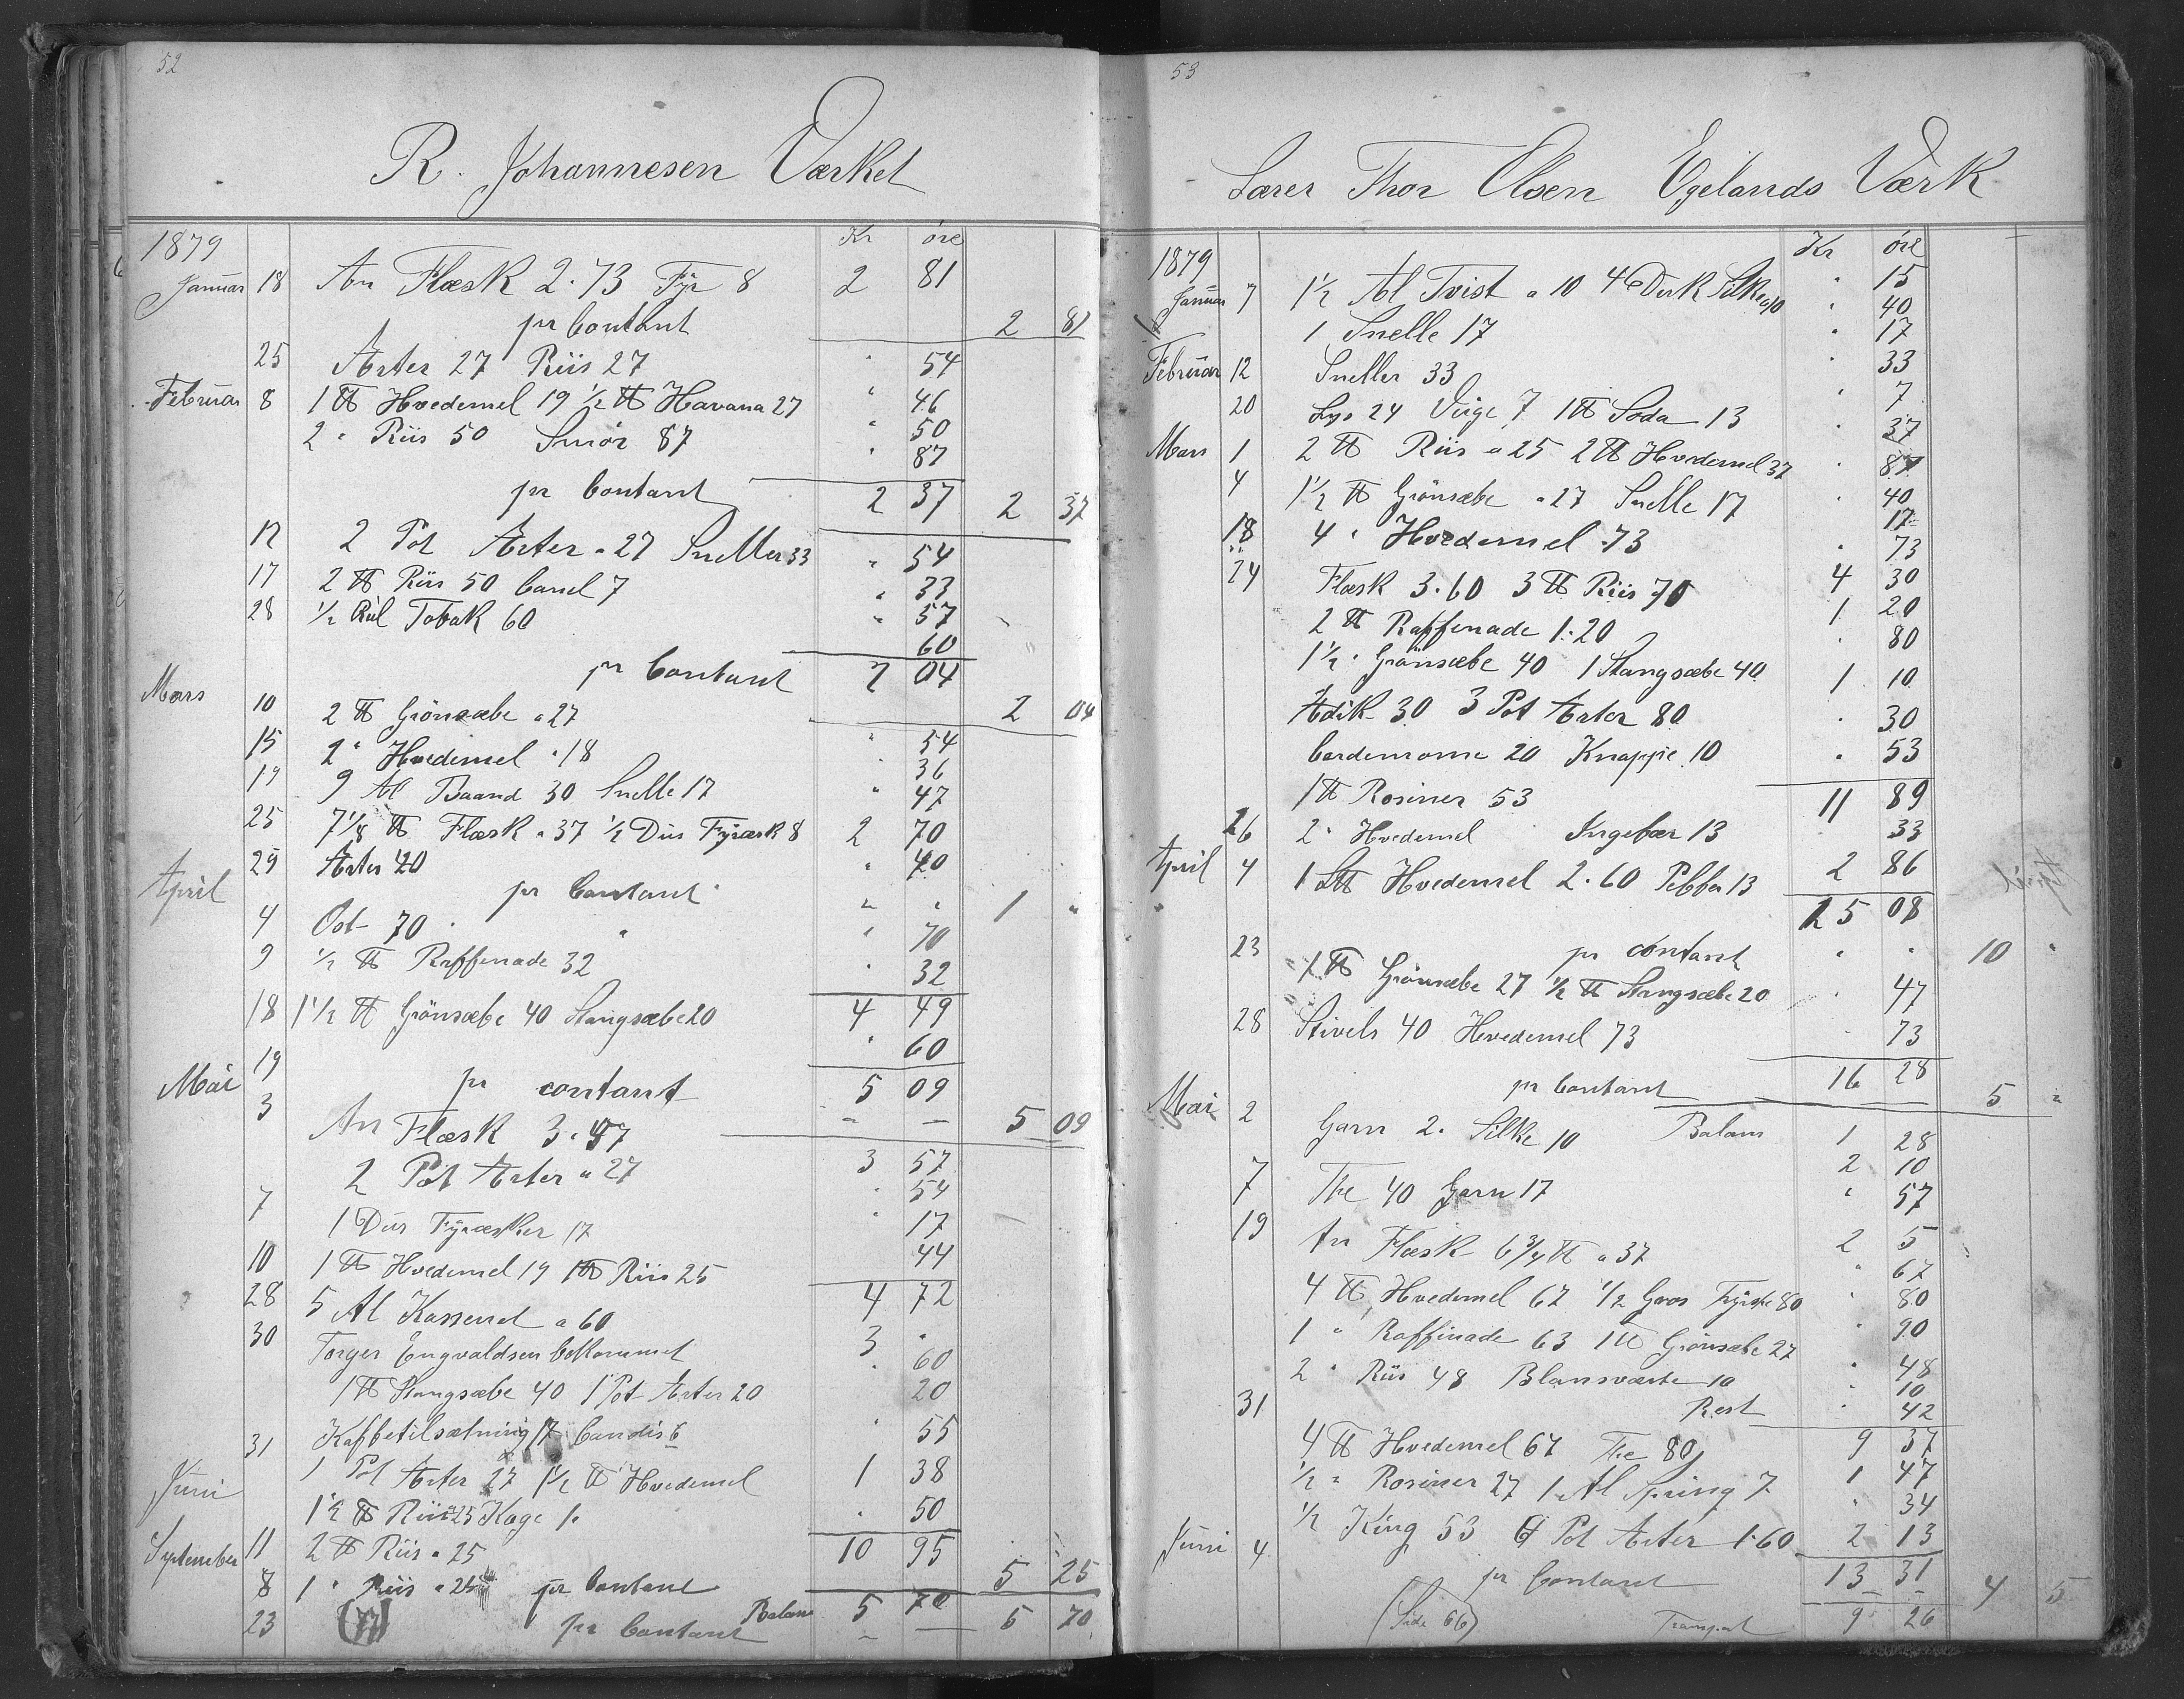 52
R. Johannesen Værket
1879 Kr öre
Januar 18 An Flæsk 2.73 Fyr 8 2 81
pr Contant 2 81
25 Ærter 27 Riis 27 " 54
Februar 8 1 ℔ Hvedemel 19 1/2 ℔ Havana 27 " 46
2 " Riis 50 Smör 87 " 50
" 87
pr Contant 2 37 2 37
12 2 Pot Ærter a 27 Sneller 33 " 54
17 2 ℔ Riis 50 Canel 7 " 33
28 1/2 Rul Tobak 60 " 57
60
pr Contant 2 04
Mars 10 2 ℔ Grönsæbe a 27 2 04
" 54
15 2 " Hvedemel a 18 " 36
19 9 Al Baand 30 Snelle 17 " 47
25 7 1/8 ℔ Flæsk a 37 1/2 Dus Fyræsk 8 2 70
29 Ærter 40 " 40
April pr Contant " " 1 "
4 Ost 70 " 70
9 1/2 ℔ Raffenade 32 " 32
4 49
18 1 1/2 ℔ Grönsæbe 40 Stangsæbe 20 " 60
19 pr contant 5 09
Mai 3 An Flæsk 3.57 5 09
3 57
2 Pot Ærter a 27 " 54
7 1 Dus Fyræsker 17 " 17
10 1 ℔ Hvedemel 19 1 ℔ Riis 25 44
4 72
28 5 Al Kassenet a 60 3 "
30 Torger Engvaldsen bekommet " 60
1 ℔ Stangsæbe 40 1 Pot Ærter 20 20
Kaffetilsætning 17 Candis 6 " 55
31 1 Pot Ærter 27 1 1/2 ℔ Hvedemel 1 38
Juni 1 1/2 ℔ Riis a 25 Kage 1. " 50
11 2 ℔ Riis a 25 10 95
September 8 1 " Riis a 25 pr Contant 5 25
Balans 5 70
23 (77) pr Contant 5 70
53
Lærer Thor Olsen Egelands Værk
1879 Kr öre
Januar 7 1 1/2 Al Tvist a 10 4 Duk Silke a 10 " 15
" 40
1 Snelle 17 " 17
Februar 12 Sneller 33 " 33
20 Lys 24 Vige 7 1 ℔ Soda 13 " 7
" 37
Mars 1 2 ℔ Riis a 25 2 ℔ Hvedemel 37 " 87
4 1 1/2 ℔ Grönsæbe a 27 Snelle 17 " 40
17
18 4 " Hvedemel 73 " 73
24 Flæsk 3.60 3 ℔ Riis 70 4 30
2 ℔ Raffenade 1.20 1 20
1 1/2 " Grönsæbe 40 1 Stangsæbe 40 " 80
Ædik 30 3 Pot Ærter 80 1 10
Cardemome 20 Knappe 10 " 30
1 ℔ Rosiner 53 " 53
11 89
26 2 " Hvedemel Ingefær 13 33
April 4 1 L℔ Hvedemel 2.60 Pebber 13 2 86
15 08
pr contant " " 10 "
23 1 ℔ Grönsæbe 27 1/2 ℔ Stangsæbe 20 " 47
28 Stivels 40 Hvedemel 73 " 73
pr Contant 16 28 5 "
Balans 1 28
Mai 2 Garn 2. Silke 10 2 10
7 The 40 Garn 17 " 57
19 An Flæsk 6 3/4 ℔ a 37 2 5
4 ℔ Hvedemel 67 1/2 Gros Fyrst 80 " 67
" 80
1 " Raffinade 63 1 ℔ Grönsæbe 27 " 90
2 " Riis 48 Blansværte 10 " 48
" 10
31 Rest " 42
9 37
4 ℔ Hvedemel 67 The 80 1 47
1/2 " Rosiner 27 1 Al Spring 7 " 34
Juni 4 1/2 King 53 6 Pot Ærter 1.60 2 13
pr Contant 13 31 4 5
(Side 66) Transport 9 26